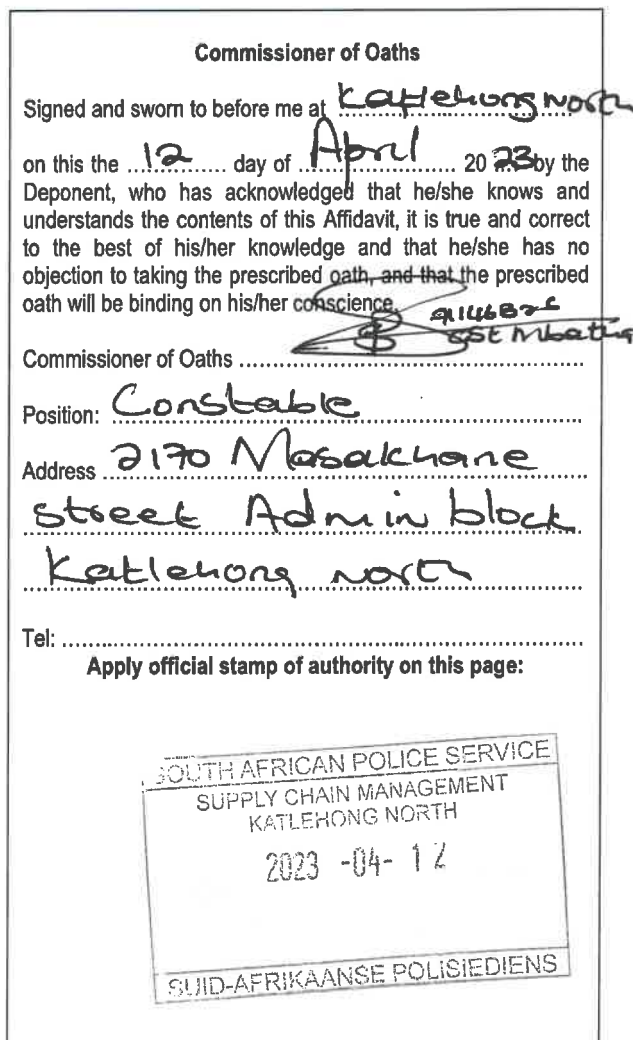 Commissioner of Oaths
Signed and sworn to before me at Katlehong North
on this the 12 day of April 20 23 by the
Deponent, who has acknowledged that he/she knows and
understands the contents of this Affidavit, it is true and correct
to the best of his/her knowledge and that he/she has no
objection to taking the prescribed oath, and that the prescribed
oath will be binding on his/her conscience.
Commissioner of Oaths
Position: Constable
Address 2170 Masakhane
street Admin block
Katlehong north
Tel:
Apply official stamp of authority on this page:
SOUTH AFRICAN POLICE SERVICE
SUPPLY CHAIN MANAGEMENT
KATLEHONG NORTH
2023 -04- 12
SUID-AFRIKAANSE POLISIEDIENS